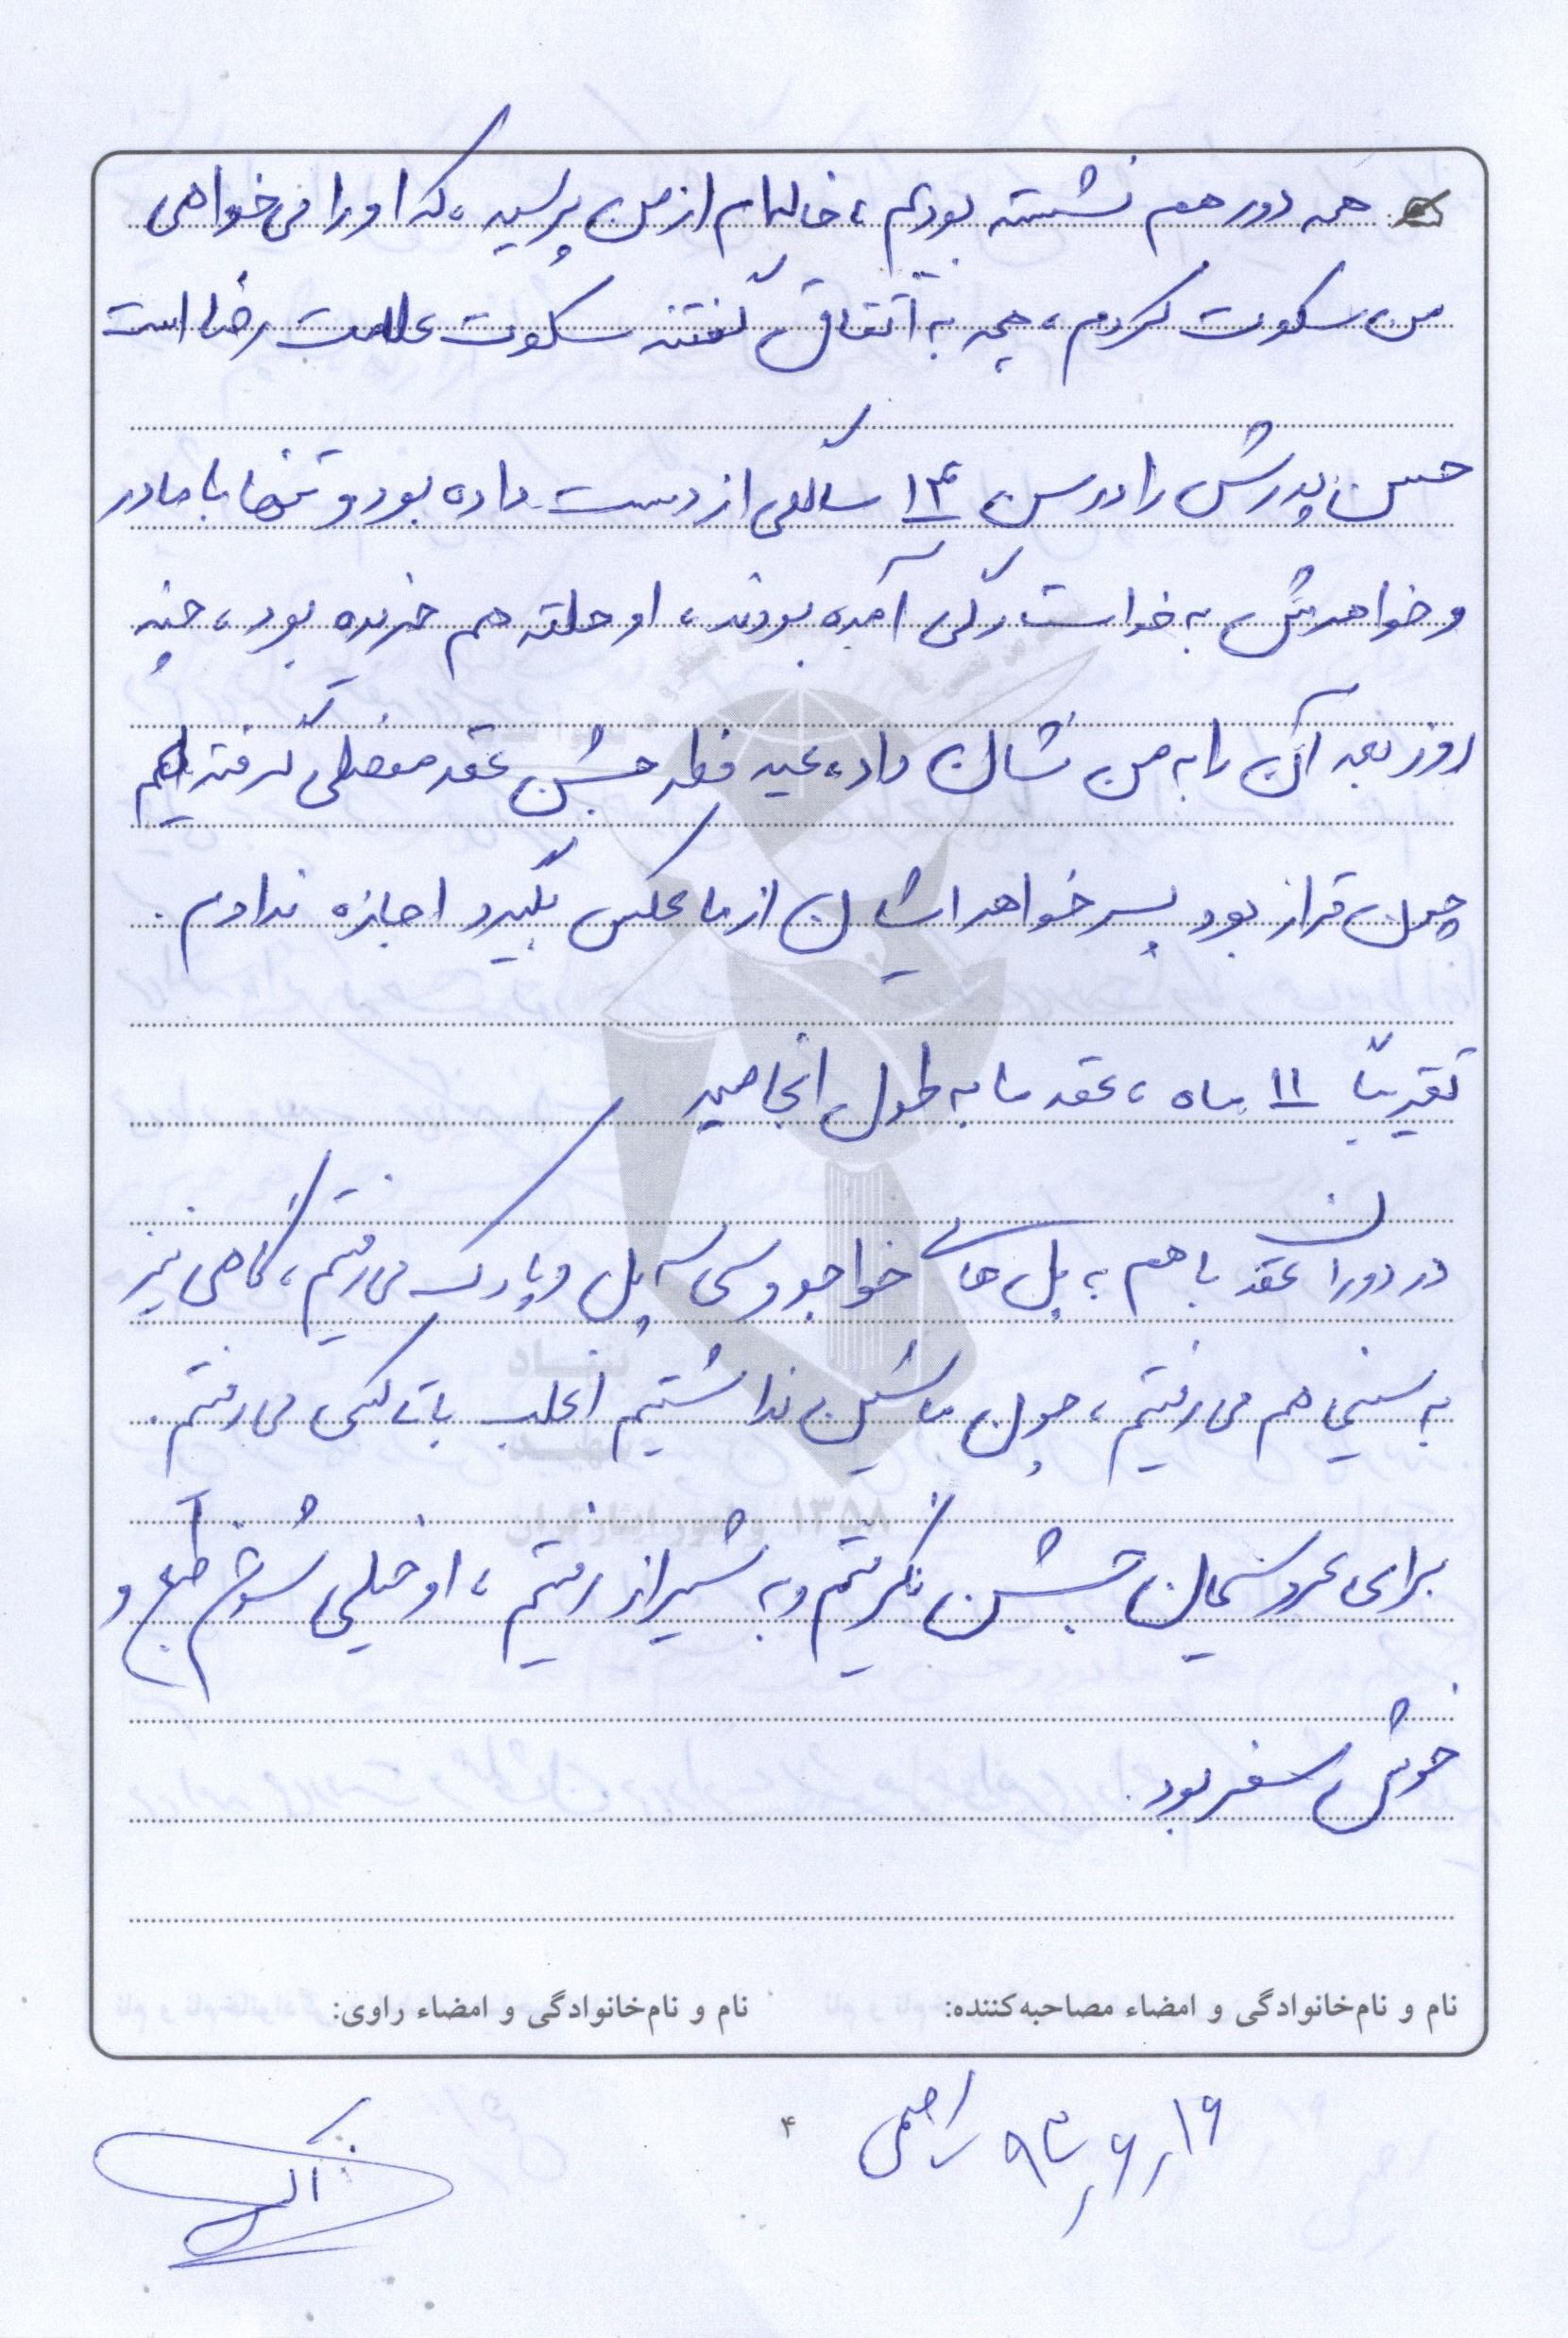 همه دور هم نشسته بودیم، خاله‌ام از من پرسید، که او را می‌خواهی
من سکوت کردم، همه به اتفاق گفتند سکوت علامت رضا است
حسن پدرش را در سن ۱۳ سالگی از دست داده بود و تنها با مادر
و خواهرش به خواستگاری آمده بودند، او حلقه هم خریده بود، چند
روز بعد آن را به من نشان داد، عید فطر جشن عقد مفصلی گرفته ایم
چون قرار بود پسر خواهر ایشان از ما عکس بگیرد اجازه ندادم.
تقریباً ۱۱ ماه، عقد ما به طول انجامید
در دوران عقد با هم به پل های خواجو و سی و سه پل و پارک می رفتیم، گاهی نیز
به سینما هم می رفتیم، چون ماشین نداشتیم اغلب با تاکسی می رفتیم.
برای عروسیمان جشن نگرفتیم و به شیراز رفتیم، او خیلی شوخ طبع و
خوش سفر بود.
بنیاد
شهید
و امور ایثارگران ۱۳۵۸
نام و نام‌خانوادگی و امضاء مصاحبه‌کننده: نام و نام‌خانوادگی و امضاء راوی:
۹۳/۶/۱۶
۴